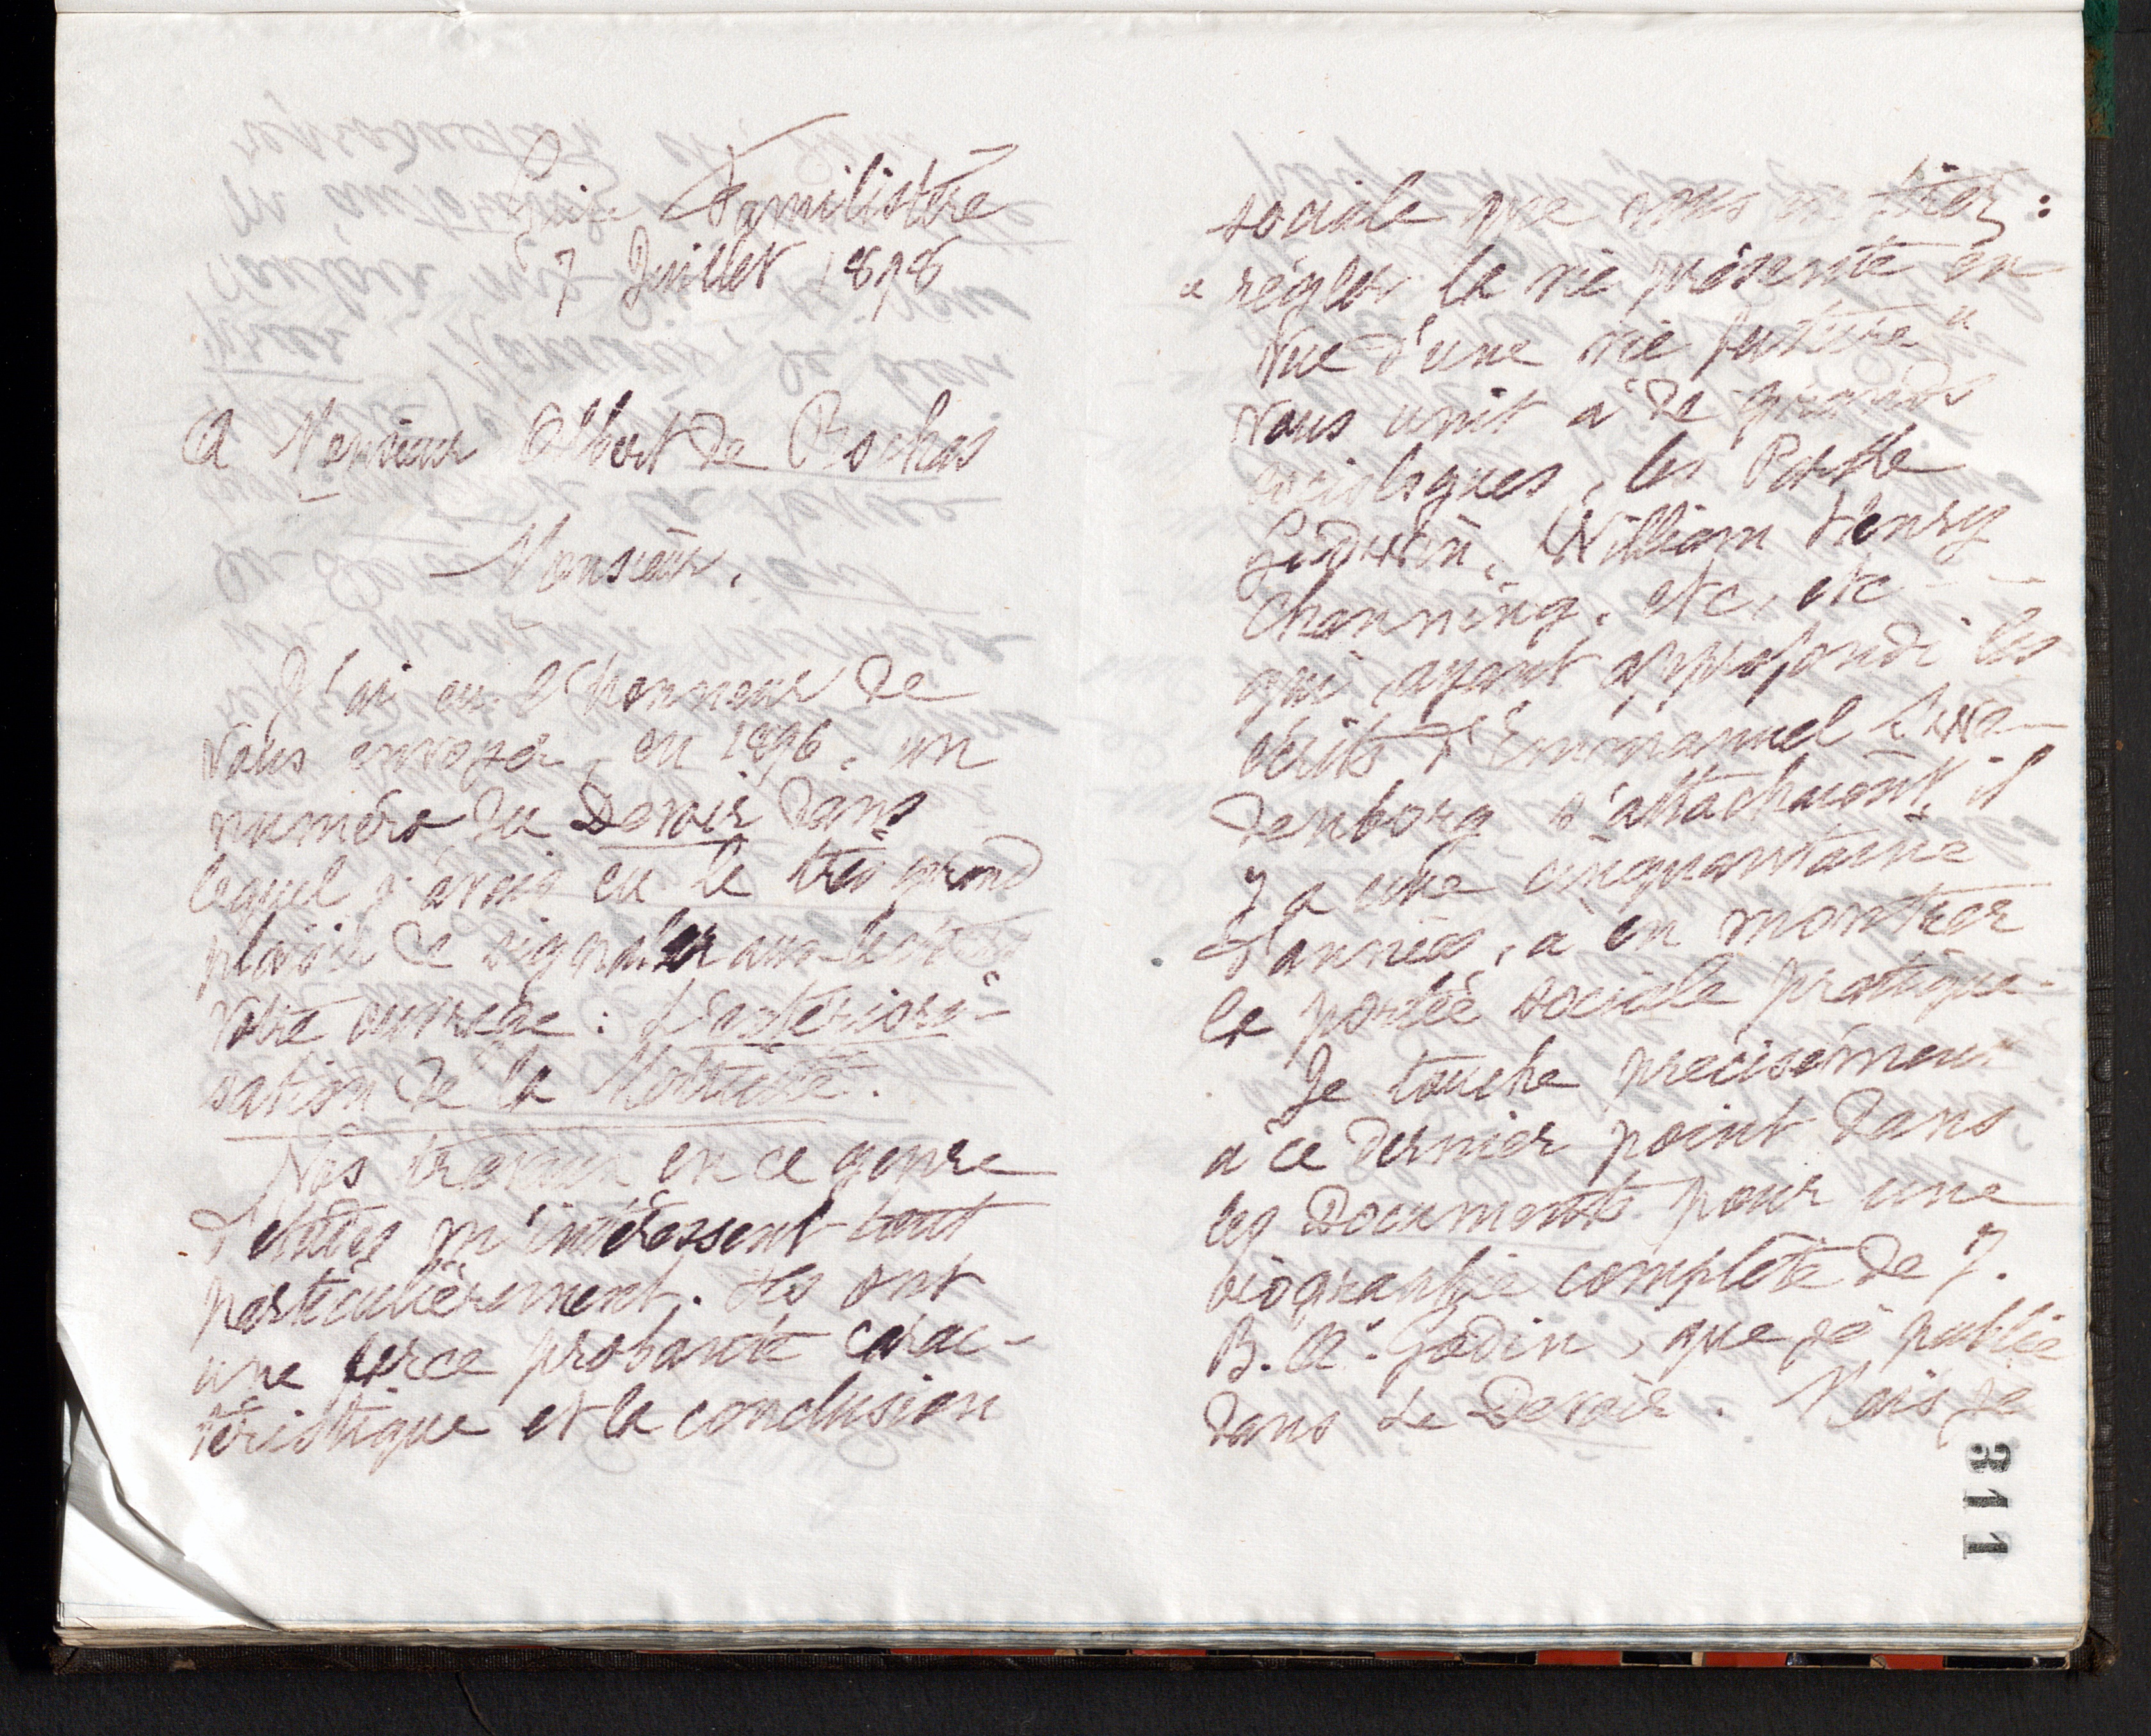 Guise Familistère
7 Juillet 1898
A Monsieur Albert de Rochas
Monsieur,
J'ai eu l'honneur de
vous envoyer, en 1896, un
numéro du Devoir dans
lequel j'avais eu le très grand
plaisir de signaler aux lecteurs
votre ouvrage : L'extériori-
sation de la Motricité.
Vos travaux en ce genre
d'études m'intéressent tout
particulièrement. Ils ont
une force probante carac-
téristique et la conclusion
sociale que vous en tirez :
« régler la vie présente en
vue d'une vie future »
vous unit à de grands
sociologues, les Parke
Godwin, William Henry
Channing, etc, etc
qui, ayant approfondi les
écrits d'Emmanuel Swe-
denborg s'attachaient, il
y a une cinquantaine
d'années, à en montrer
la portée sociale pratique.
Je touche précisément
à ce dernier point dans
les Documents pour une
biographie complète de J.
B. A. Godin, que je publie
dans Le Devoir. Mais je
311